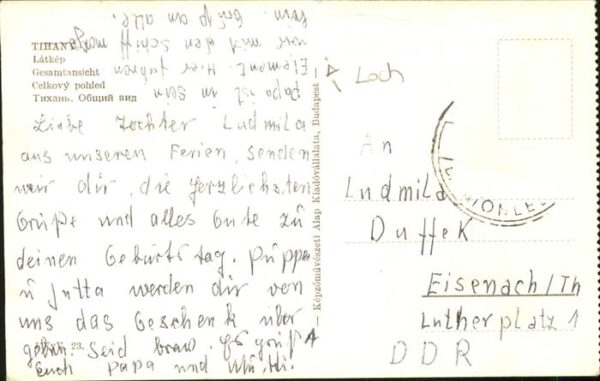 TIHANY
Látkép
Gesamtansicht
Celkový pohled
Тихань. Общий вид
Liebe Tochter Ludmila
aus unseren Ferien, senden
wir dir, die herzlichsten
Grüße und alles Gute zu
deinen Geburtstag. Puppe
u Jutta werden dir von
uns das Geschenk über
geben. Seid brav. Es grüßt
euch Papa und Mutti.
Papa ist in sein
Element. Hier fahren
wir mit den Schiff
sein. Gruß an alle.
Képzőművészeti Alap Kiadóvállalata, Budapest
Loch
An
Ludmila
Duffek
Eisenach/Th
Lutherplatz 1
DDR